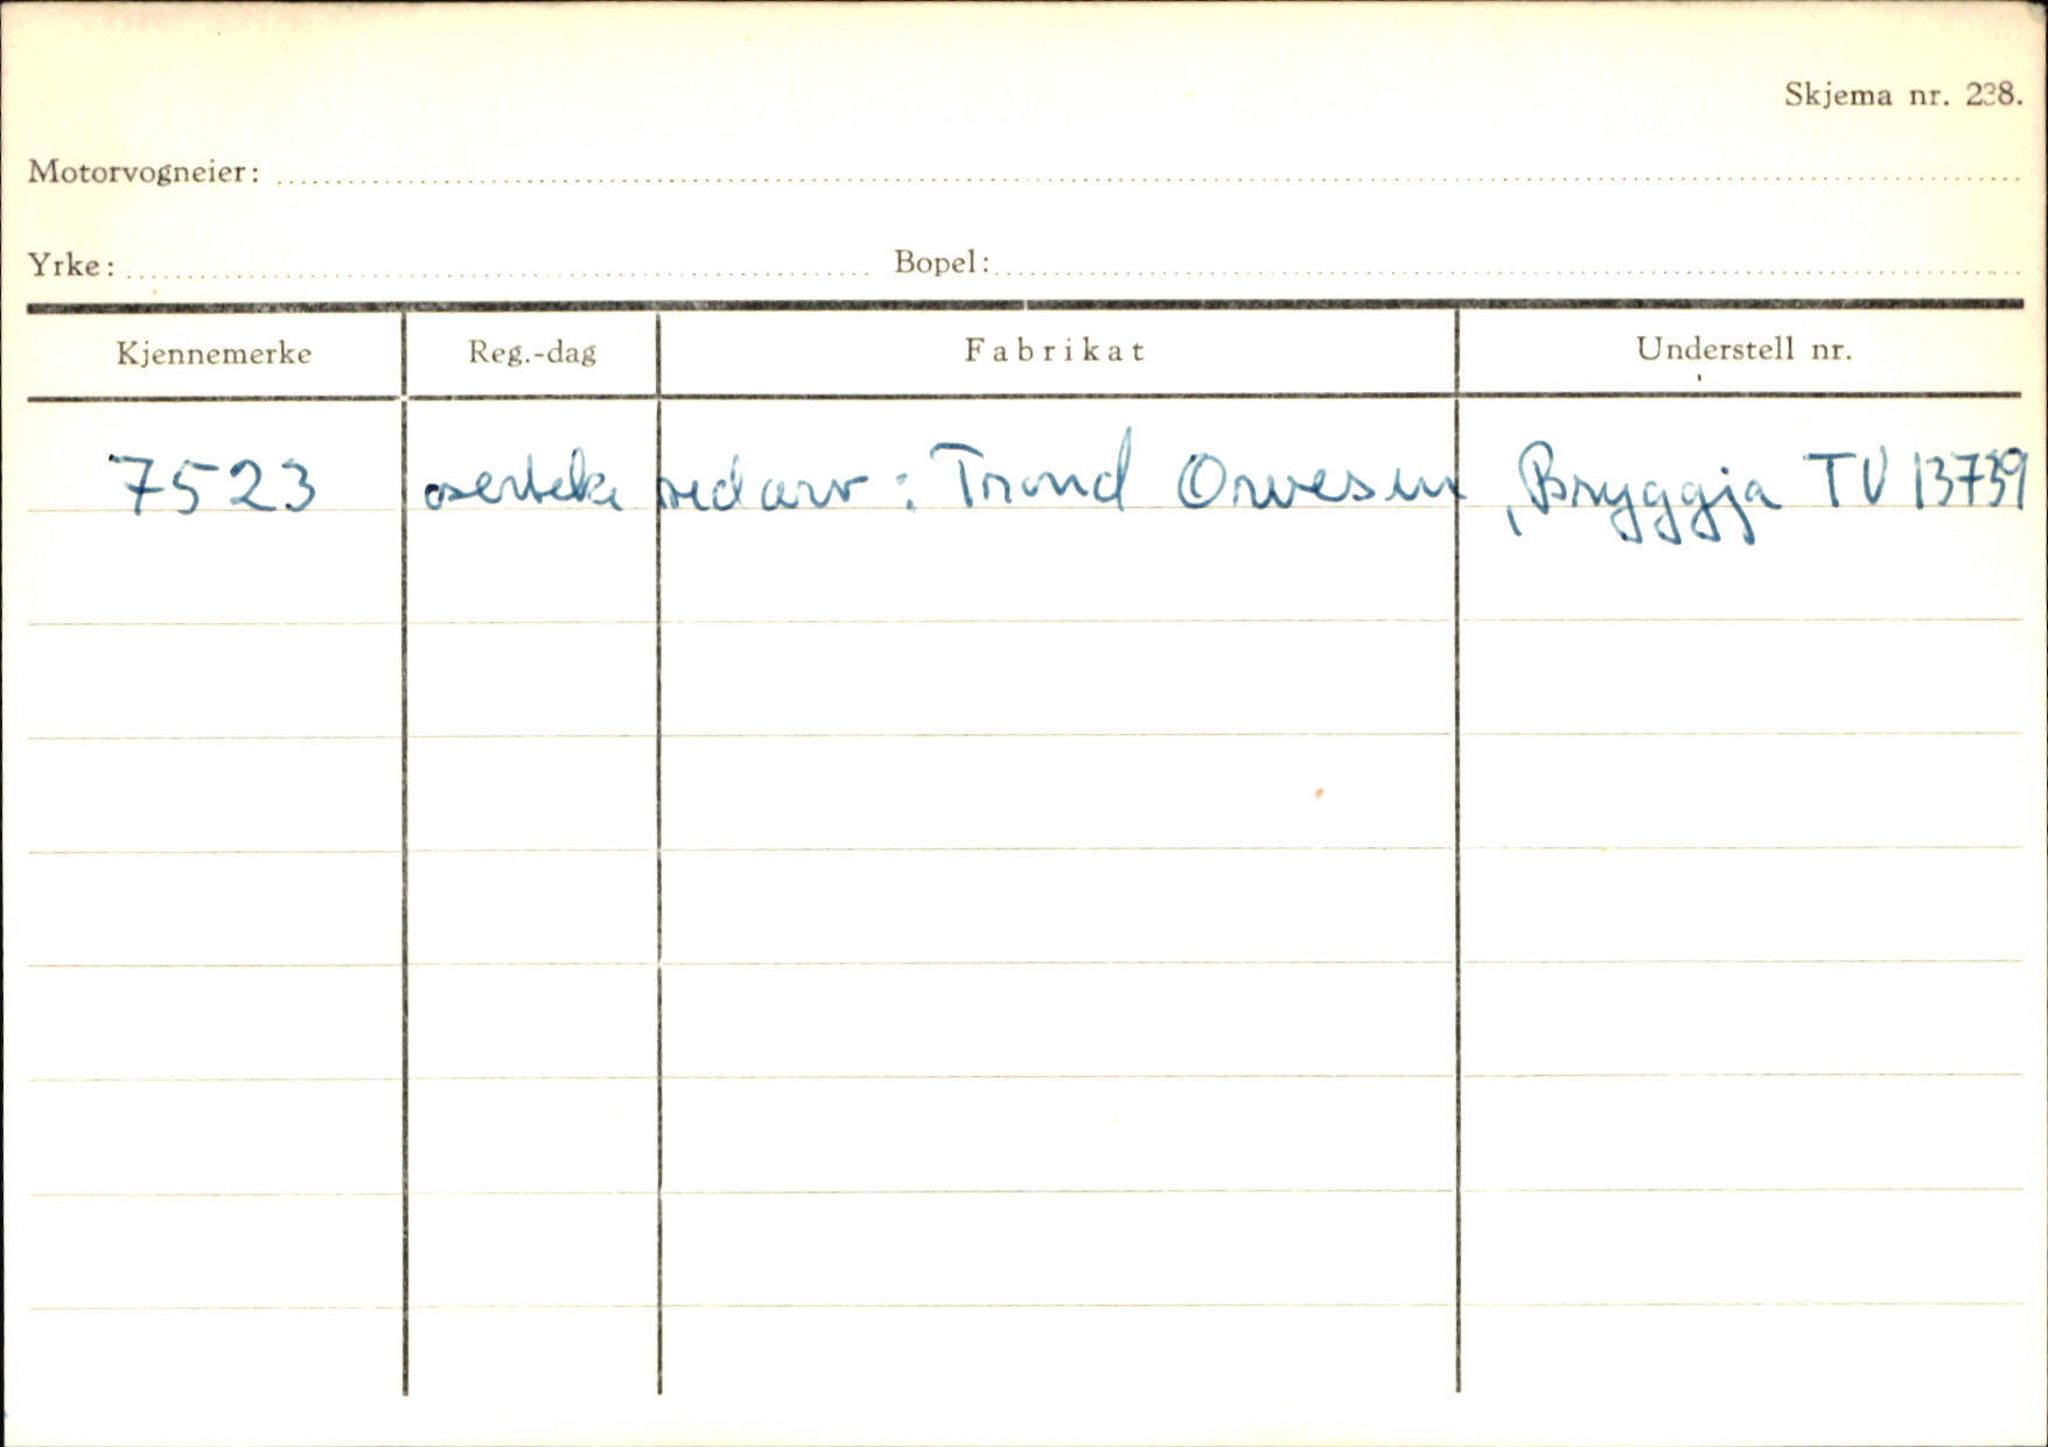 Skjema nr. 238.
Motorvogneier:
Yrke: Bopel:
Kjennemerke Reg.-dag Fabrikat Understell nr.
7523 : Trond Orvesen, Bryggja TV 13739